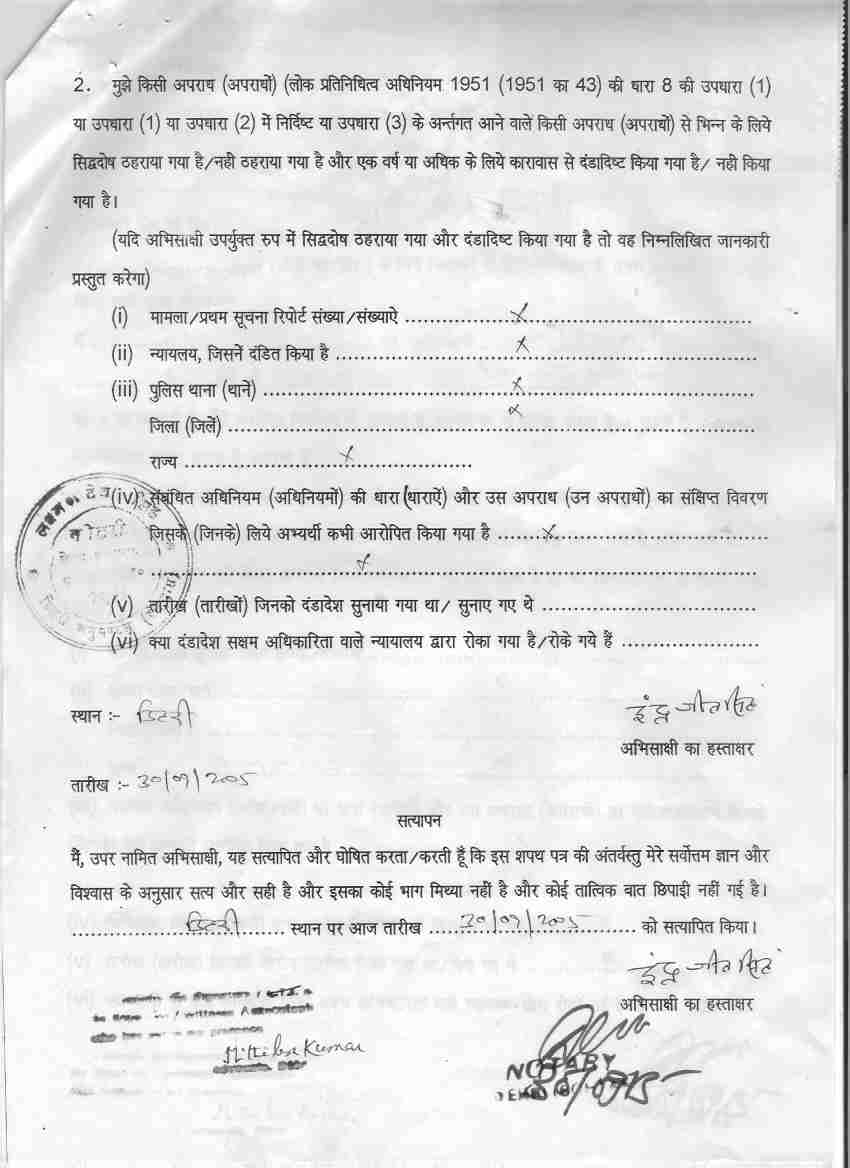 2. मुझे किसी अपराध (अपराधों) (लोक प्रतिनिधित्व अधिनियम 1951 (1951 का 43) की धारा 8 की उपधारा (1)
या उपधारा (1) या उपधारा (2) में निर्दिष्ट या उपधारा (3) के अर्न्तगत आने वाले किसी अपराध (अपराधों) से भिन्न के लिये
सिद्वदोष ठहराया गया है/नही ठहराया गया है और एक वर्ष या अधिक के लिये कारावास से दंडादिष्ट किया गया है/ नही किया
गया है।
(यदि अभिसाक्षी उपर्युक्त रुप में सिद्वदोष ठहराया गया और दंडादिष्ट किया गया है तो वह निम्नलिखित जानकारी
प्रस्तुत करेगा)
(i) मामला/प्रथम सूचना रिपोर्ट संख्या/संख्याऐ ........ x ........
(ii) न्यायलय, जिसनें दंडित किया है ........ x ........
(iii) पुलिस थाना (थानें) ........ x ........
जिला (जिलें) ........ x ........
राज्य ........ x ........
(iv) संबंधित अधिनियम (अधिनियमों) की धारा (धाराऐं) और उस अपराध (उन अपराधों) का संक्षिप्त विवरण
जिसके (जिनके) लिये अभ्यर्थी कभी आरोपित किया गया है ........ x ........
........ x ........
(v) तारीख (तारीखों) जिनको दंडादेश सुनाया गया था/ सुनाए गए थे ........
(vi) क्या दंडादेश सक्षम अधिकारिता वाले न्यायालय द्वारा रोका गया है/रोके गये हैं ........
नोटरी
स्थान :- डिहरी
इंद्र जीत सिंह
अभिसाक्षी का हस्ताक्षर
तारीख :- 30/09/2005
सत्यापन
मैं, उपर नामित अभिसाक्षी, यह सत्यापित और घोषित करता/करती हूँ कि इस शपथ पत्र की अंतर्वस्तु मेरे सर्वोत्तम ज्ञान और
विश्वास के अनुसार सत्य और सही है और इसका कोई भाग मिथ्या नहीं है और कोई तात्विक बात छिपाई नहीं गई है।
........ डिहरी ........ स्थान पर आज तारीख ........ 30/09/2005 ........ को सत्यापित किया।
इंद्र जीत सिंह
अभिसाक्षी का हस्ताक्षर
Kumar
NOTARY